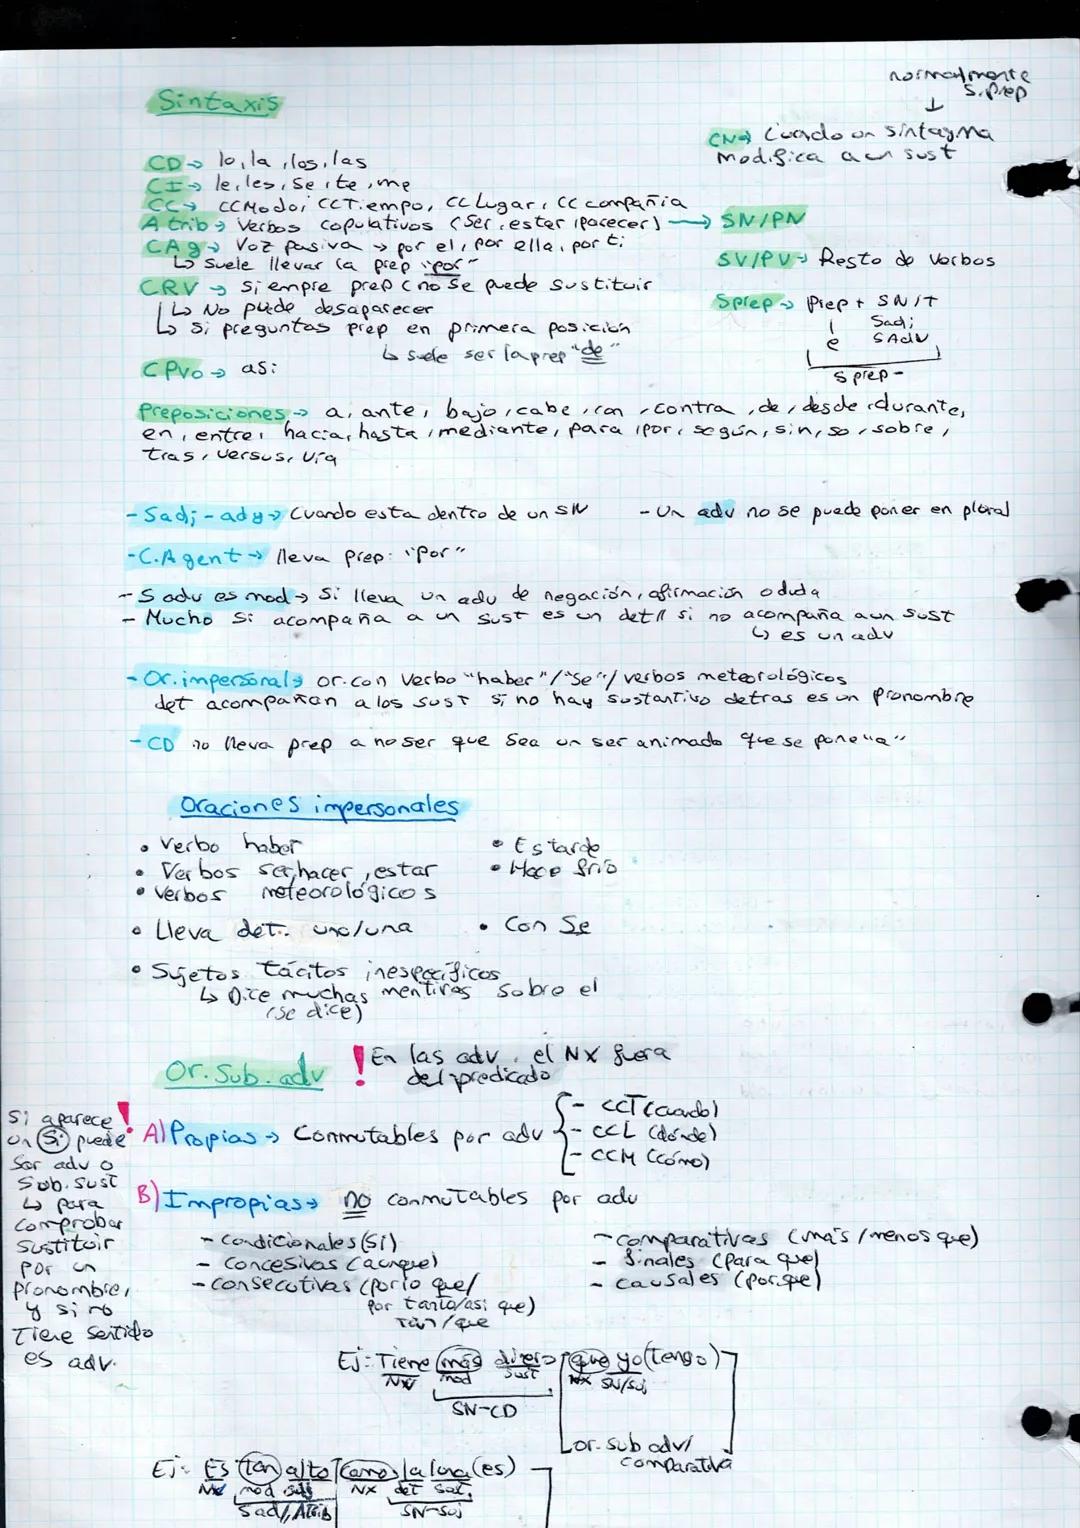 Sintaxis
normalmente
S.prep
↓
CN→ Cuando un sintagma
modifica a un sust
CD→ lo, la, los, las
CI→ le, les, se, te, me
CC→ CCModo, CCTiempo, CC Lugar, CC compañia
Atrib→ Verbos copulativos (Ser, estar, parecer) → SN/PN
CAg→ Voz pasiva → por el, por ella, por ti
↳ Suele llevar la prep "por"
SV/PV→ Resto de verbos
CRV → siempre prep (no se puede sustituir
↳ No puede desaparecer
↳ Si preguntas prep en primera posición
↳ suele ser la prep "de"
Sprep→ Prep + SN/T
Sadj
e SAdv
Sprep-
CPvo→ asi
Preposiciones→ a, ante, bajo, cabe, con, contra, de, desde, durante,
en, entre, hacia, hasta, mediante, para, por, según, sin, so, sobre,
tras, versus, vía
- Sadj-ady→ Cuando esta dentro de un SN
- Un adv no se puede poner en plural
- C.Agent→ lleva prep: "por"
- Sadv es mod→ Si lleva un adv de negación, afirmación o duda
- Mucho si acompaña a un sust es un det // si no acompaña a un sust
↳ es un adv
- Or.impersonal→ or.con verbo "haber"/"se"/verbos meteorológicos
det acompañan a los sust si no hay sustantivo detras es un pronombre
- CD no lleva prep a no ser que sea un ser animado que se pone "a"
Oraciones impersonales
• Verbo haber
• Es tarde
• Verbos ser, hacer, estar
• Hace frío
• Verbos meteorológicos
• Lleva det. uno/una
• Con Se
• Sujetos tácitos inespecíficos
↳ Dice muchas mentiras sobre el
(se dice)
Or.Sub.adv
! En las adv. el NX fuera
del predicado
A) Propias→ Conmutables por adv
- CCT (cuando)
- CCL (dónde)
- CCM (cómo)
Si aparece !
un Si puede
Ser adv o
Sub.sust
↳ para
comprobar
sustituir
por un
pronombre,
y si no
Tiene sentido
es adv.
B) Impropias→ no conmutables por adv
- condicionales (Si)
- concesivas (aunque)
- consecutivas (por lo que/
por tanto/asi que)
Tan/que
- comparativas (más/menos que)
- finales (para que)
- causales (porque)
Ej: Tiene más dinero que yo (tengo)
NV mod sust NX SN/Suj
SN-CD
or.sub adv/
comparativa
Ej: Es tan alto como la luna (es)
mod NX det sust
Sadj/Atrib SN-Suj